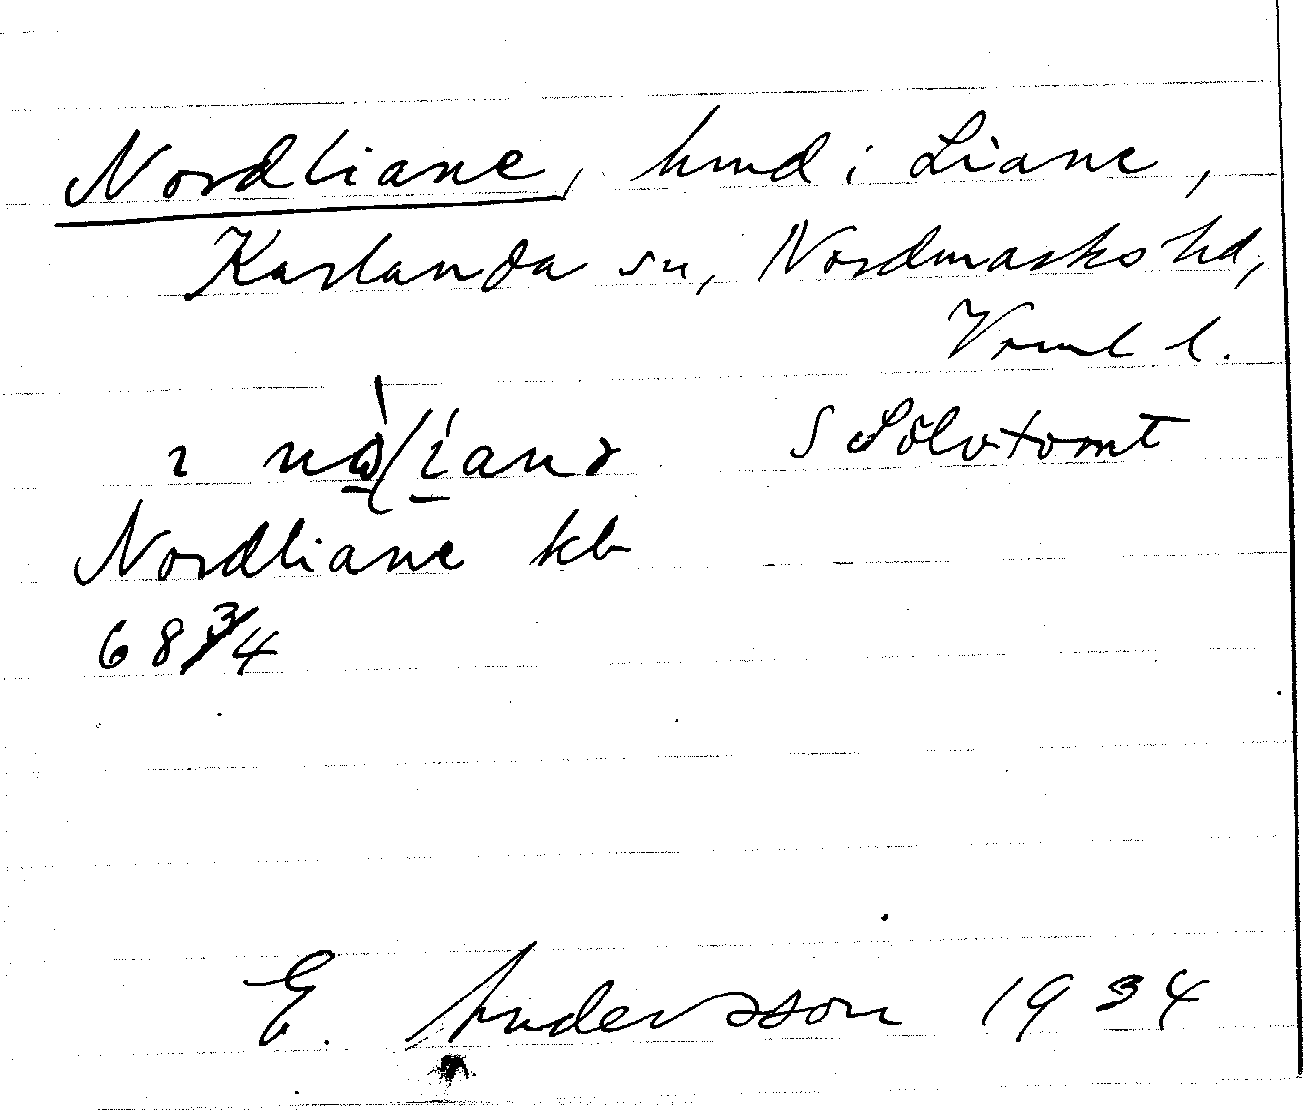 Nordliane, hmd i Liane,
Karlanda sn, Nordmarks hd,
Värml l.
S Sölvtomt
Nordliane kb
68 3/4
E. Andersson 1934